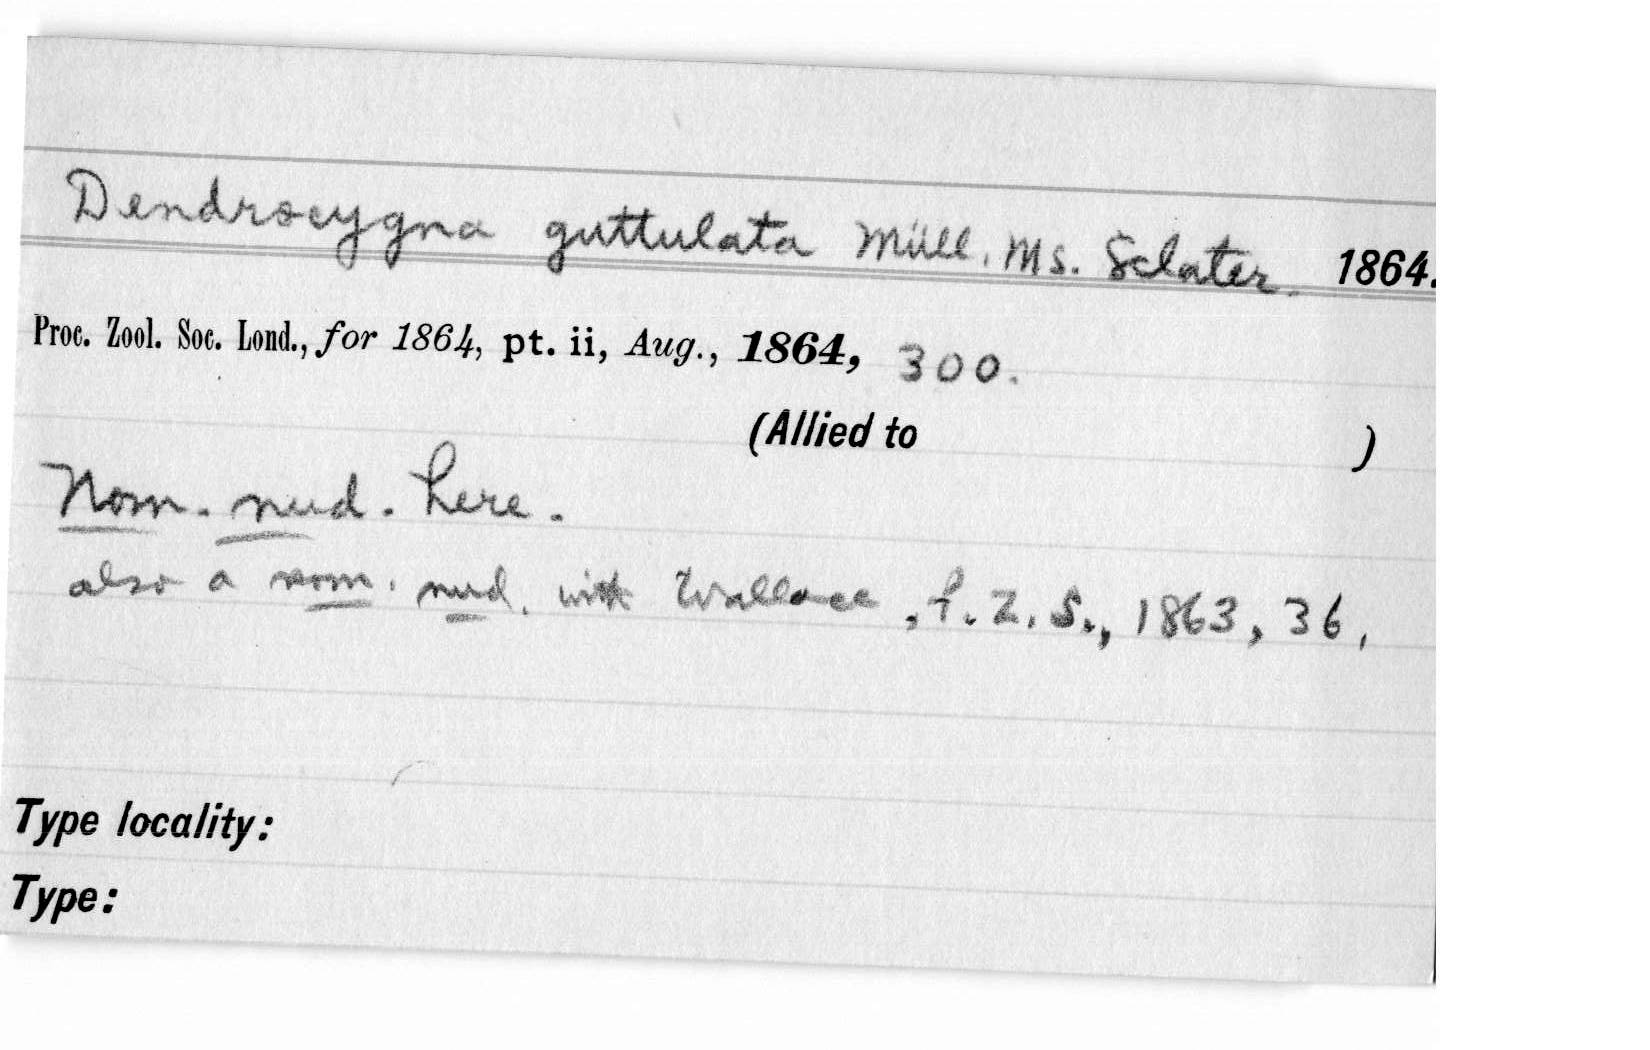 Dendrocygna guttulata Müll. Ms. Sclater. 1864.
Proc. Zool. Soc. Lond., for 1864, pt. ii, Aug., 1864, 300.
(Allied to )
Nom. nud. here.
also a nom. nud. with Wallace, P.Z.S., 1863, 36,
Type locality:
Type: